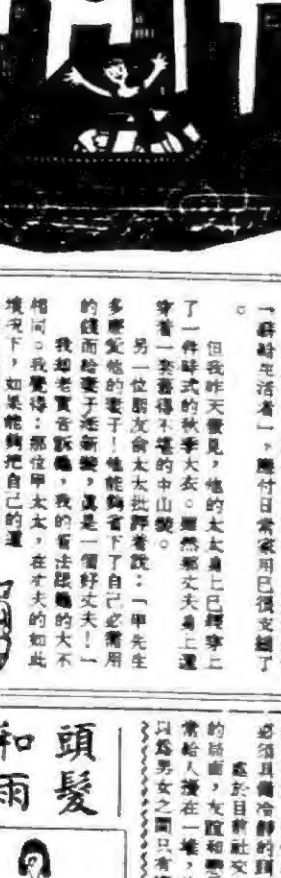 「薪給生活者」,應付日常家用已很支絀了
。
但我昨天瞥見,他的太太身上已經穿上
了一件時式的秋季大衣。雖然那丈夫身上還
穿着一套舊得不堪的中山裝。
另一位朋友俞太太批評着說:「甲先生
多麼愛他的妻子!他能夠省下了自己必需用
的錢而給妻子添新裝,真是一個好丈夫!」
我却老實告訴她,我的看法跟她的大不
相同。我覺得:那位甲太太,在丈夫的如此
境况下,如果能夠把自己的還
必須具備冷靜的頭
處於目前社交
的局面,友誼和戀
常給人攪在一堆,
以爲男女之間只有
頭髮
和雨